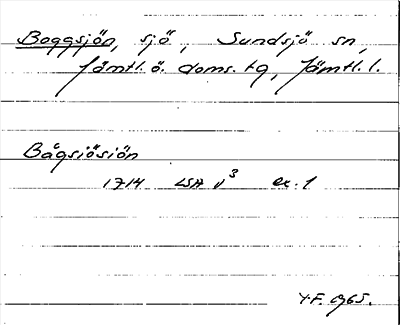 Boggsjön, sjö, Sundsjö sn,
Jämtl. ö. doms. tg, Jämtl. l.
Bågsiösiön
1714 LSA v³ ex. 1
Y.F. 1965.